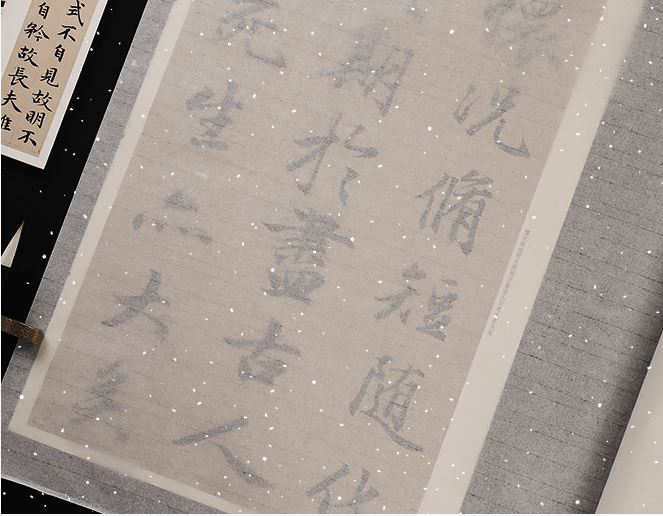 懷況脩短随化
期於盡古人
死生亦大矣
式不自見故明不
自矜故長夫惟